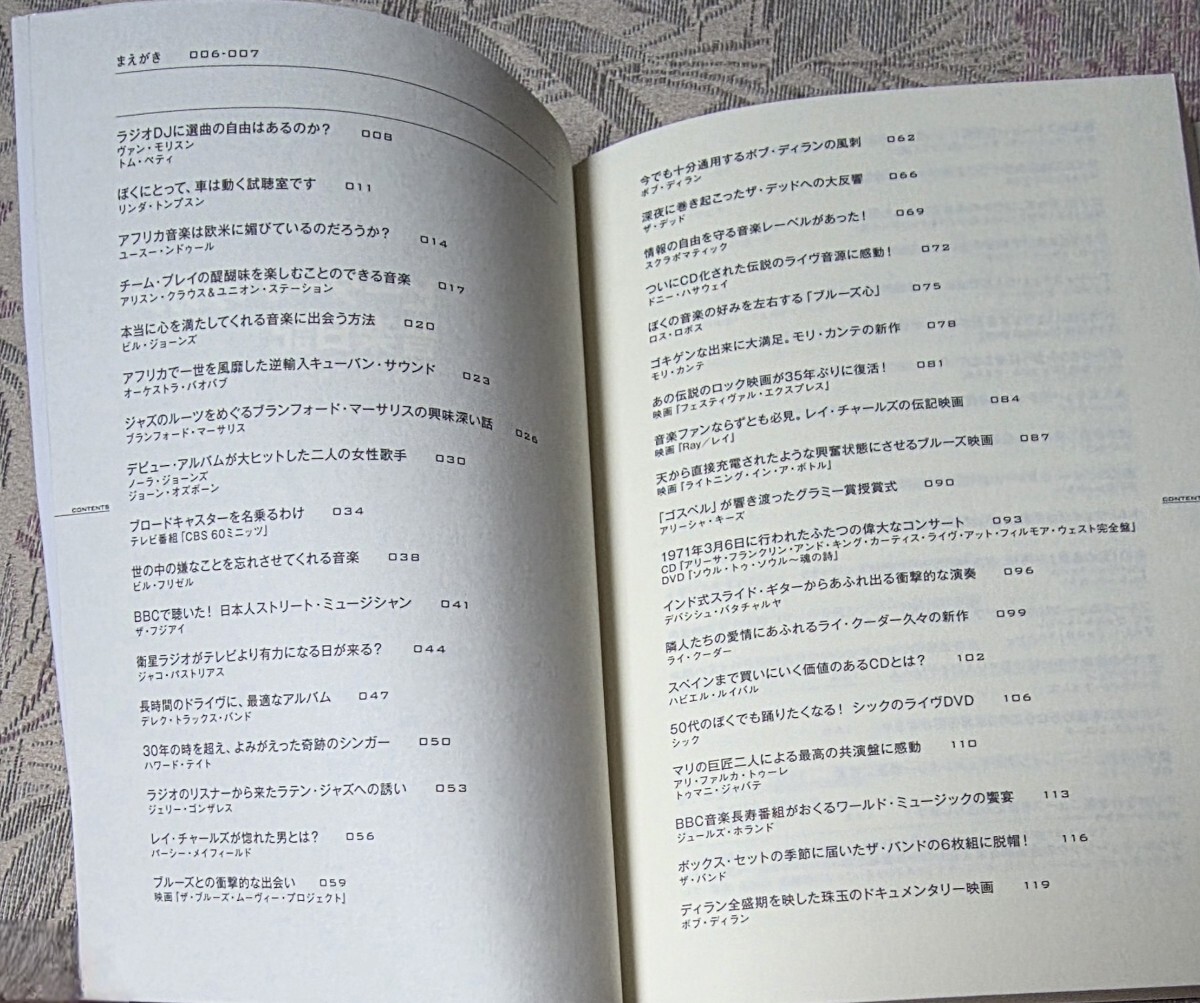 まえがき 006-007
ラジオDJに選曲の自由はあるのか? 008
ヴァン・モリスン
トム・ペティ
ぼくにとって、車は動く試聴室です 011
リンダ・トンプスン
アフリカ音楽は欧米に媚びているのだろうか? 014
ユースー・ンドゥール
チーム・プレイの醍醐味を楽しむことのできる音楽 017
アリスン・クラウス&ユニオン・ステーション
本当に心を満たしてくれる音楽に出会う方法 020
ビル・ジョーンズ
アフリカで一世を風靡した逆輸入キューバン・サウンド 023
オーケストラ・バオバブ
ジャズのルーツをめぐるブランフォード・マーサリスの興味深い話 026
ブランフォード・マーサリス
デビュー・アルバムが大ヒットした二人の女性歌手 030
ノーラ・ジョーンズ
ジョーン・オズボーン
CONTENTS
ブロードキャスターを名乗るわけ 034
テレビ番組「CBS 60ミニッツ」
世の中の嫌なことを忘れさせてくれる音楽 038
ビル・フリゼル
BBCで聴いた! 日本人ストリート・ミュージシャン 041
ザ・フジアイ
衛星ラジオがテレビより有力になる日が来る? 044
ジャコ・パストリアス
長時間のドライヴに、最適なアルバム 047
デレク・トラックス・バンド
30年の時を超え、よみがえった奇跡のシンガー 050
ハワード・テイト
ラジオのリスナーから来たラテン・ジャズへの誘い 053
ジェリー・ゴンザレス
レイ・チャールズが惚れた男とは? 056
パーシー・メイフィールド
ブルーズとの衝撃的な出会い 059
映画『ザ・ブルーズ・ムーヴィー・プロジェクト』
今でも十分通用するボブ・ディランの風刺 062
ボブ・ディラン
深夜に巻き起こったザ・デッドへの大反響 066
ザ・デッド
情報の自由を守る音楽レーベルがあった! 069
スクラボマティック
ついにCD化された伝説のライヴ音源に感動! 072
ドニー・ハサウェイ
ぼくの音楽の好みを左右する「ブルーズ心」 075
ロス・ロボス
ゴキゲンな出来に大満足。モリ・カンテの新作 078
モリ・カンテ
あの伝説のロック映画が35年ぶりに復活! 081
映画『フェスティヴァル・エクスプレス』
音楽ファンならずとも必見。レイ・チャールズの伝記映画 084
映画『Ray/レイ』
天から直接充電されたような興奮状態にさせるブルーズ映画 087
映画『ライトニング・イン・ア・ボトル』
「ゴスペル」が響き渡ったグラミー賞授賞式 090
アリーシャ・キーズ
CONTENT
1971年3月6日に行われたふたつの偉大なコンサート 093
CD『アリーサ・フランクリン・アンド・キング・カーティス・ライヴ・アット・フィルモア・ウェスト完全盤』
DVD『ソウル・トゥ・ソウル〜魂の詩』
インド式スライド・ギターからあふれ出る衝撃的な演奏 096
デバシシュ・バタチャルヤ
隣人たちの愛情にあふれるライ・クーダー久々の新作 099
ライ・クーダー
スペインまで買いにいく価値のあるCDとは? 102
ハビエル・ルイバル
50代のぼくでも踊りたくなる! シックのライヴDVD 106
シック
マリの巨匠二人による最高の共演盤に感動 110
アリ・ファルカ・トゥーレ
トゥマニ・ジャバテ
BBC音楽長寿番組がおくるワールド・ミュージックの饗宴 113
ジュールズ・ホランド
ボックス・セットの季節に届いたザ・バンドの6枚組に脱帽! 116
ザ・バンド
ディラン全盛期を映した珠玉のドキュメンタリー映画 119
ボブ・ディラン